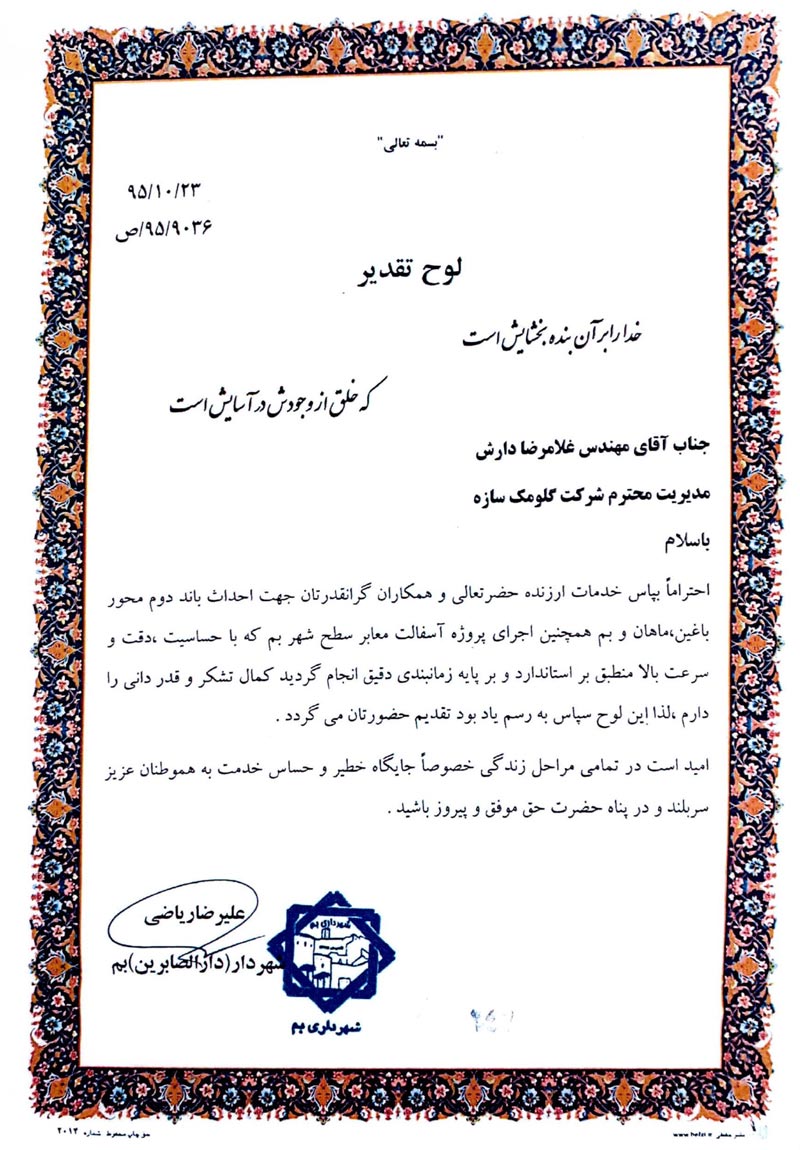 "بسمه تعالی"
۹۵/۱۰/۲۳
۹۵/۹۰۳۶/ص
لوح تقدیر
خدا را بر آن بنده بخشایش است
که خلق از وجودش در آسایش است
جناب آقای مهندس غلامرضا دارش
مدیریت محترم شرکت گلومک سازه
باسلام
احتراماً بپاس خدمات ارزنده حضرتعالی و همکاران گرانقدرتان جهت احداث باند دوم محور
باغین،ماهان و بم همچنین اجرای پروژه آسفالت معابر سطح شهر بم که با حساسیت ،دقت و
سرعت بالا منطبق بر استاندارد و بر پایه زمانبندی دقیق انجام گردید کمال تشکر و قدر دانی را
دارم ،لذا این لوح سپاس به رسم یاد بود تقدیم حضورتان می گردد .
امید است در تمامی مراحل زندگی خصوصاً جایگاه خطیر و حساس خدمت به هموطنان عزیز
سربلند و در پناه حضرت حق موفق و پیروز باشید .
علیرضا ریاضی
شهردار(دارالصابرین)بم
شهرداری بم
شهرداری بم
نشر حفظی www.hefzi.ir
حق چاپ محفوظ شماره ۲۰۱۲